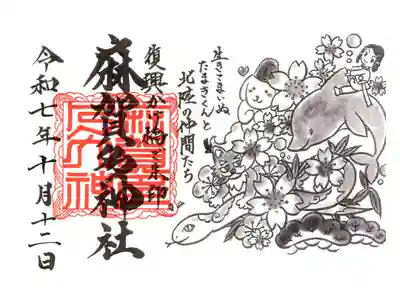 生きこまいぬ
たまきくんと
北陸の仲間たち
復興かけ橋朱印
麻賀多神社
令和七年十月十二日